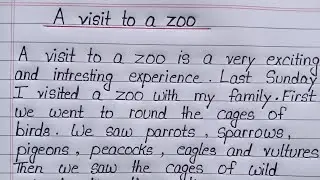 A visit to a zoo
A visit to a zoo is a very exciting
and intresting experience. Last Sunday
I visited a zoo with my family. First
we went to round the cages of
birds. We saw parrots, sparrows,
pigeons, peacocks, eagles and vultures
Then we saw the cages of wild